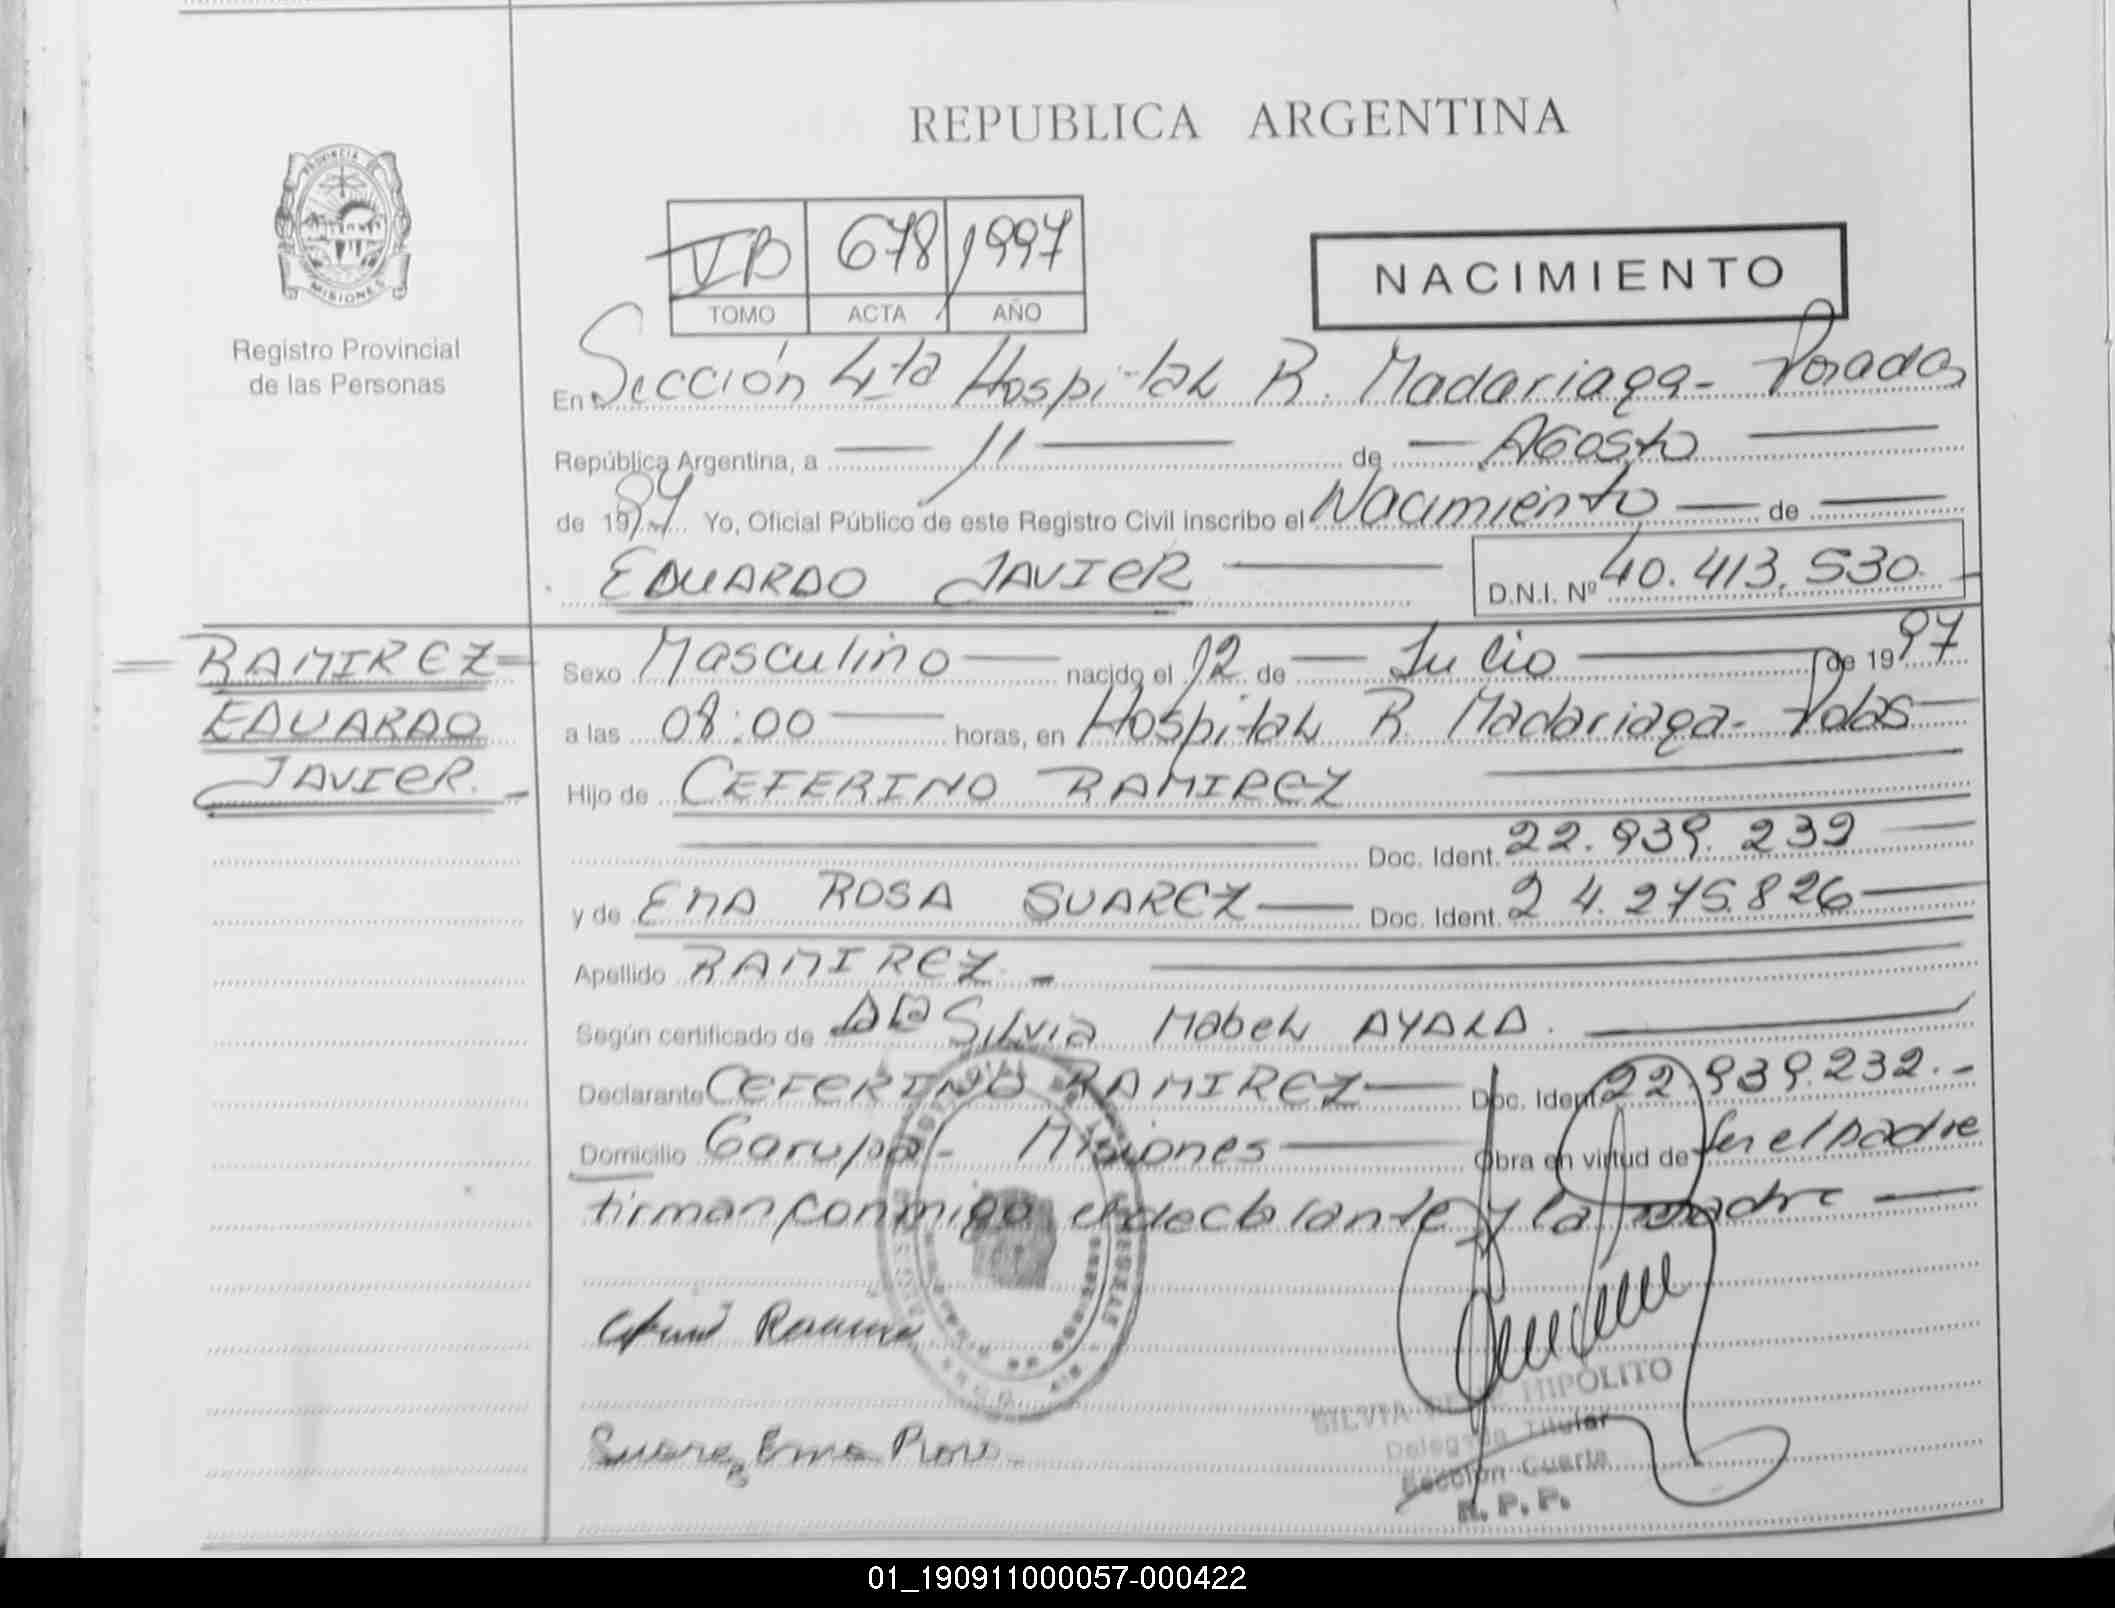 REPUBLICA ARGENTINA
PROVINCIA
MISIONES
Registro Provincial
de las Personas
VB 678 1997
TOMO ACTA AÑO
NACIMIENTO
En Sección 4ta Hospital R. Madariaga - Posadas
República Argentina, a 11 de Agosto
de 1997 Yo, Oficial Público de este Registro Civil inscribo el Nacimiento de
EDUARDO JAVIER D.N.I. Nº 40.413.530
RAMIREZ
EDUARDO
JAVIER.
Sexo Masculino nacido el 12 de Julio de 1997
a las 08:00 horas, en Hospital R. Madariaga - Pdas
Hijo de CEFERINO RAMIREZ
Doc. Ident. 22.939.232
y de EMA ROSA SUAREZ Doc. Ident. 24.275.826
Apellido RAMIREZ.
Según certificado de Silvia Mabel AYALA.
Declarante CEFERINO RAMIREZ Doc. Ident. 22.939.232.-
Domicilio Garupá - Misiones Obra en virtud de ser el padre
firman conmigo el declarante y la madre
Ramirez
Suarez Ema Rosa
SILVIA HIPOLITO
Delegada Titular
Sección Cuarta
R. P. P.
01_190911000057-000422